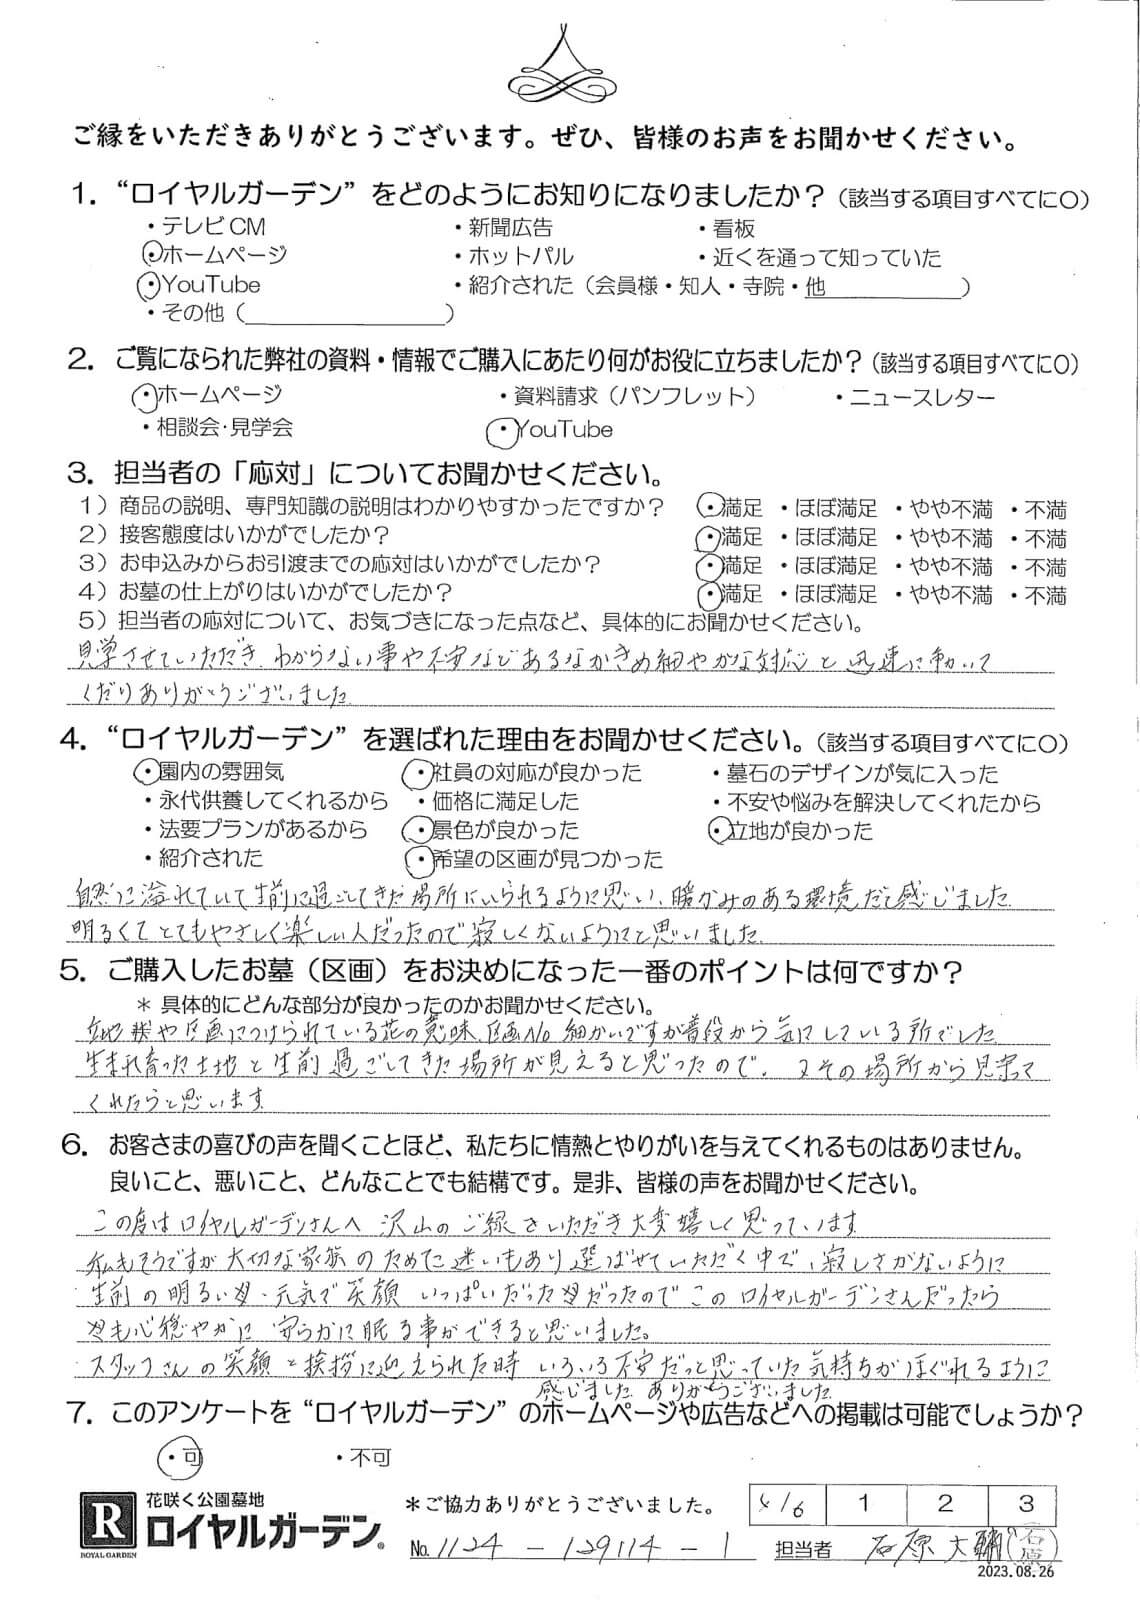 ご縁をいただきありがとうございます。ぜひ、皆様のお声をお聞かせください。
1. “ロイヤルガーデン” をどのようにお知りになりましたか？（該当する項目すべてに〇）
・テレビCM ・新聞広告 ・看板
・ホームページ ・ホットパル ・近くを通って知っていた
・YouTube ・紹介された（会員様・知人・寺院・他　　　）
・その他（　　　）
2. ご覧になられた弊社の資料・情報でご購入にあたり何がお役に立ちましたか？（該当する項目すべてに〇）
・ホームページ ・資料請求（パンフレット） ・ニュースレター
・相談会・見学会 ・YouTube
3. 担当者の「応対」についてお聞かせください。
1）商品の説明、専門知識の説明はわかりやすかったですか？ ・満足 ・ほぼ満足 ・やや不満 ・不満
2）接客態度はいかがでしたか？ ・満足 ・ほぼ満足 ・やや不満 ・不満
3）お申込みからお引渡までの応対はいかがでしたか？ ・満足 ・ほぼ満足 ・やや不満 ・不満
4）お墓の仕上がりはいかがでしたか？ ・満足 ・ほぼ満足 ・やや不満 ・不満
5）担当者の応対について、お気づきになった点など、具体的にお聞かせください。
見学させていただき、わからない事や不安などあるなかきめ細やかな対応と迅速に動いて
くださりありがとうございました
4. “ロイヤルガーデン” を選ばれた理由をお聞かせください。（該当する項目すべてに〇）
・園内の雰囲気 ・社員の対応が良かった ・墓石のデザインが気に入った
・永代供養してくれるから ・価格に満足した ・不安や悩みを解決してくれたから
・法要プランがあるから ・景色が良かった ・立地が良かった
・紹介された ・希望の区画が見つかった
自然に溢れていて生前に過ごしてきた場所にいられるように思い、暖かみのある環境だと感じました
明るくてとてもやさしく楽しい人だったので寂しくないようにと思いました
5. ご購入したお墓（区画）をお決めになった一番のポイントは何ですか？
＊ 具体的にどんな部分が良かったのかお聞かせください。
や区画につけられている花の意味、区画No 細かいですが普段から気にしている所でした
生まれ育った土地と生前過ごしてきた場所が見えると思ったので、又その場所から見守って
くれたらと思います
6. お客さまの喜びの声を聞くことほど、私たちに情熱とやりがいを与えてくれるものはありません。
良いこと、悪いこと、どんなことでも結構です。是非、皆様の声をお聞かせください。
この度はロイヤルガーデンさんへ 沢山のご縁をいただき大変嬉しく思っています
私もそうですが大切な家族のためて迷いもあり選ばせていただく中で、寂しさがないように
生前の明るい母・元気で笑顔いっぱいだった母だったのでこのロイヤルガーデンさんだったら
母も心穏やかに安らかに眠る事ができると思いました。
スタッフさんの笑顔と挨拶に迎えられた時 いろいろ不安だっと思っていた気持ちがほぐれるように
感じました ありがとうございました
7. このアンケートを “ロイヤルガーデン” のホームページや広告などへの掲載は可能でしょうか？
・可 ・不可
R ROYAL GARDEN
花咲く公園墓地
ロイヤルガーデン®
＊ご協力ありがとうございました。
1 2 3
No. 1124 - 129114 - 1 担当者 石原大輔 石原
2023.08.26